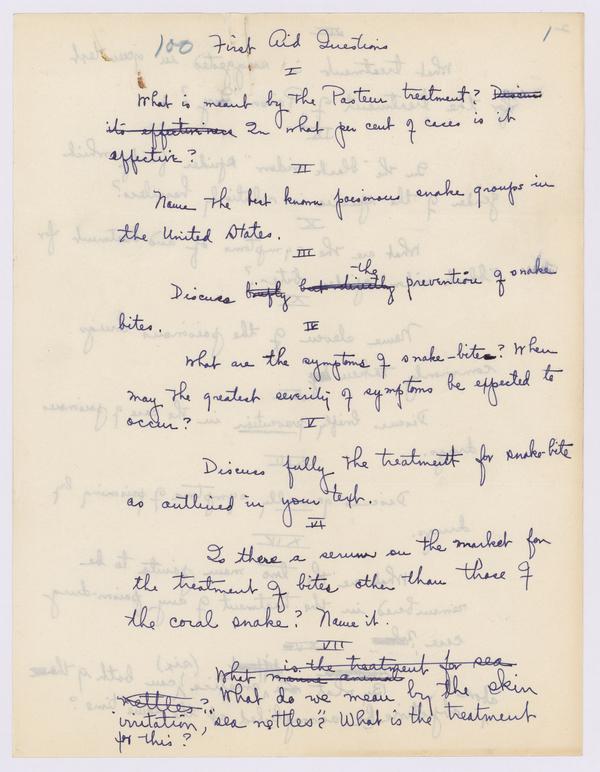 100 First Aid Questions 1
I
What is meant by the Pasteur treatment? Discuss
its effectiveness In what per cent of cases is it
effective?
II
Name the best known poisonous snake groups in
the United States.
III
the
Discuss briefly but directly prevention of snake
bites.
IV
What are the symptoms of snake-bite? When
may the greatest severity of symptoms be expected to
occur?
V
Discuss fully the treatment for snake-bite
as outlined in your text.
VI
Is there a serum on the market for
the treatment of bites other than those of
the coral snake? Name it.
VII
is the treatment for sea
What marine animal
nettles? What do we mean by the skin
irritation, "sea nettles"? What is the treatment
for this?